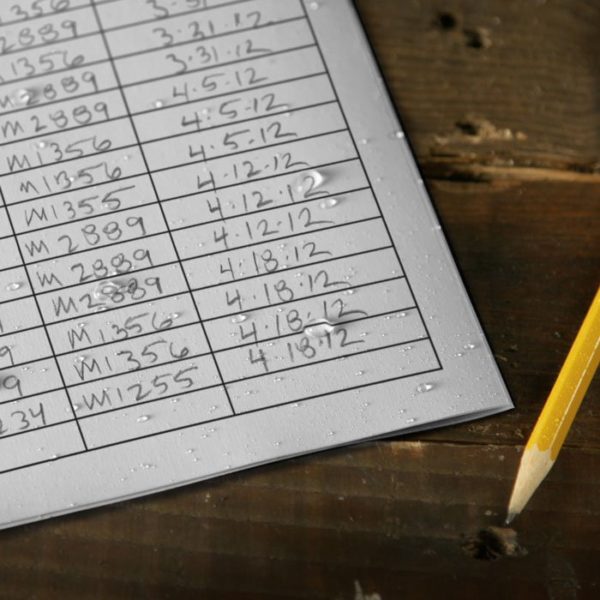 1356
2889 3.31.12
m1356 3.31.12
m2889 3.31.12
m2889 4.5.12
m1356 4.5.12
m1356 4.5.12
m1355 4.12.12
m2889 4.12.12
m2889 4.12.12
m2889 4.18.12
9 m1356 4.18.12
9 m1356 4.18.12
234 m1255 4.18.12